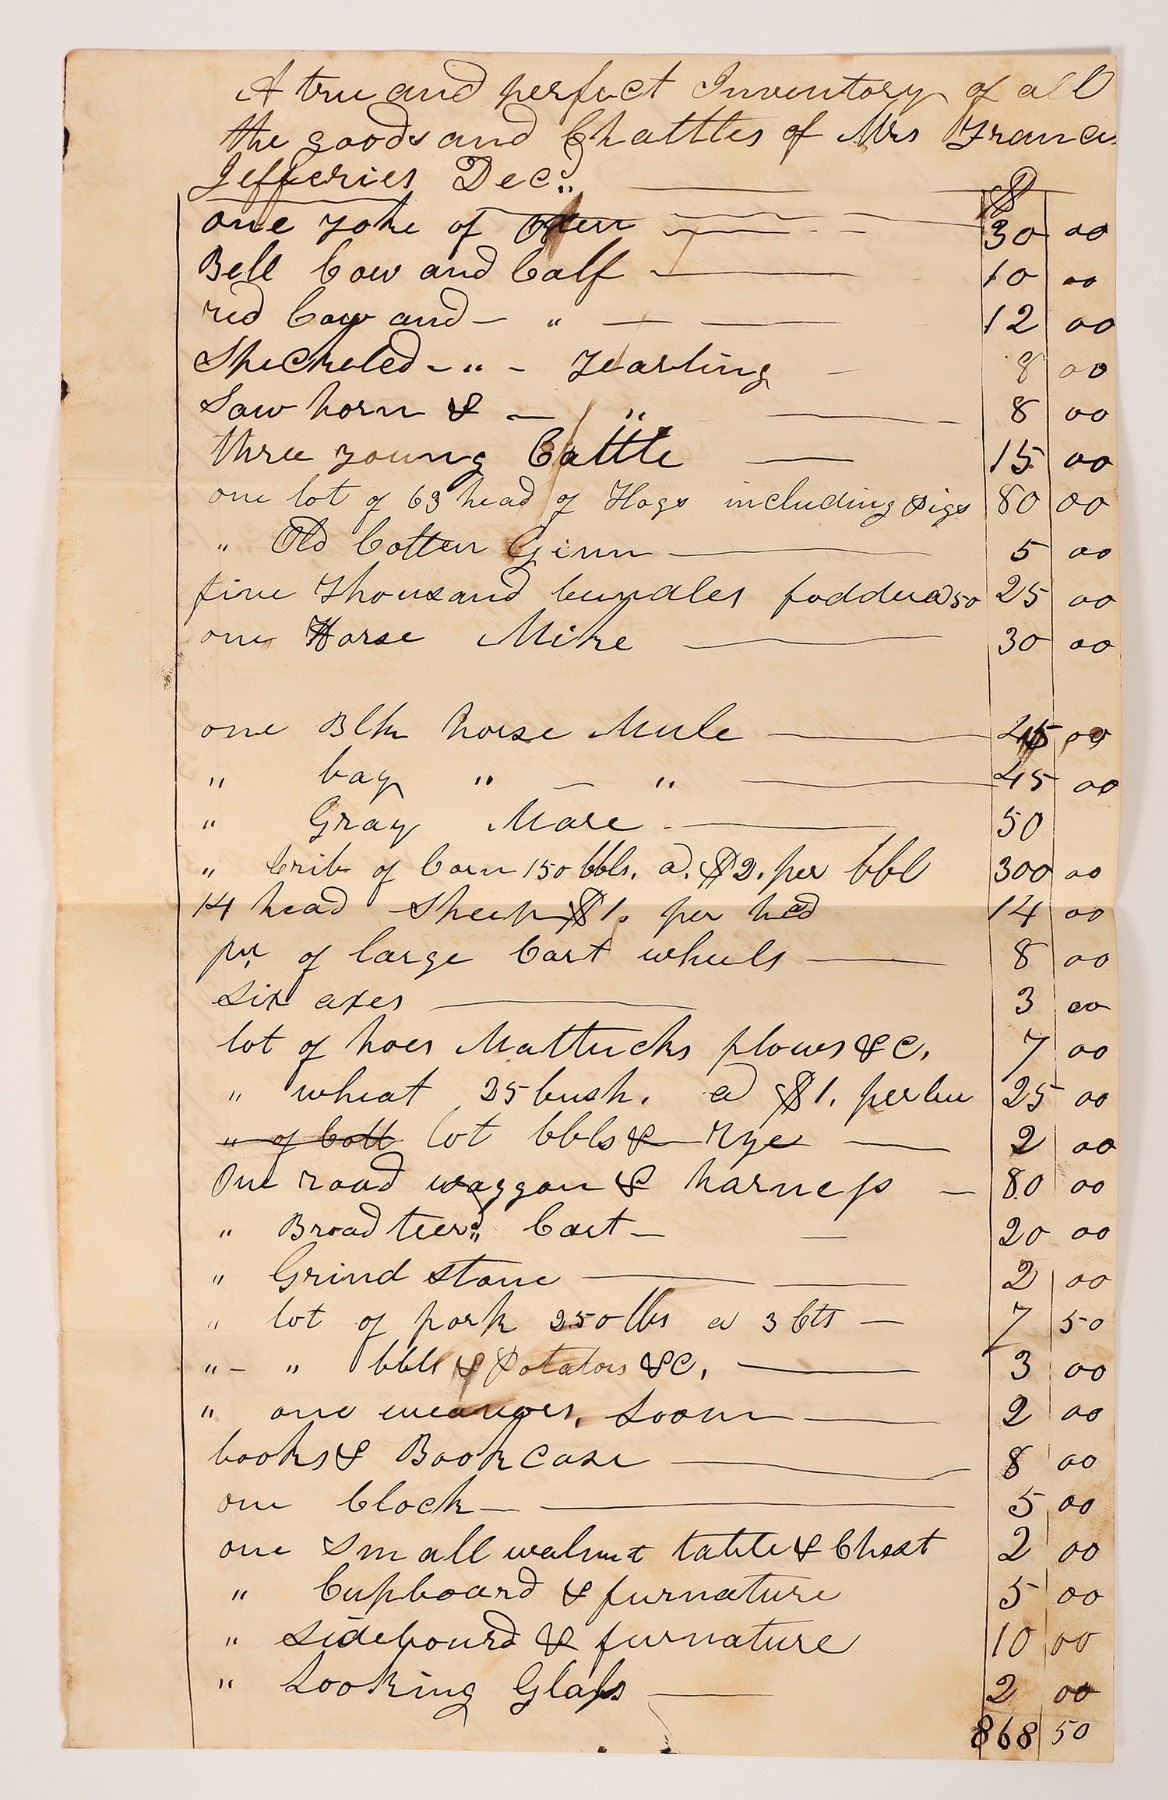 A true and perfect Inventory of all
the goods and Chattles of Mrs Francis
Jefferies Decd.
$
one yoke of Oxen 30 00
Bell Cow and Calf 10 00
red Cow and — " — 12 00
Speckeled - " - Yearling - 8 00
Saw horn & — " 8 00
three young Cattle 15 00
one lot of 63 head of Hogs including Pigs 80 00
" Old Cotten Ginn 5 00
five thousand bundles fodder @ 50 25 00
one Horse Mike 30 00
one Blk horse Mule 45 00
" bay " — " 45 00
" Gray Mare 50
" Crib of Corn 150 bbls. a. $2. per bbl 300 00
14 head Sheep $1. per head 14 00
pr. of large Cart wheels 8 00
six axes 3 00
lot of hoes Mattucks plows &C. 7 00
" wheat 25 bush. a $1. per bu 25 00
" of Cott lot bbls & Rye 2 00
One road waggon & harness 80 00
" Broad teerd. Cart 20 00
" Grind stone 2 00
" lot of pork 250 lbs a 3 Cts 7 50
" - " bbls & Potatoes &C. 3 00
" one weavers, Loom 2 00
books & Book case 8 00
one Clock 5 00
one small walnut table & Chest 2 00
" Cupboard & furnature 5 00
" sideboard & furnature 10 00
" Looking Glass 2 00
868 50